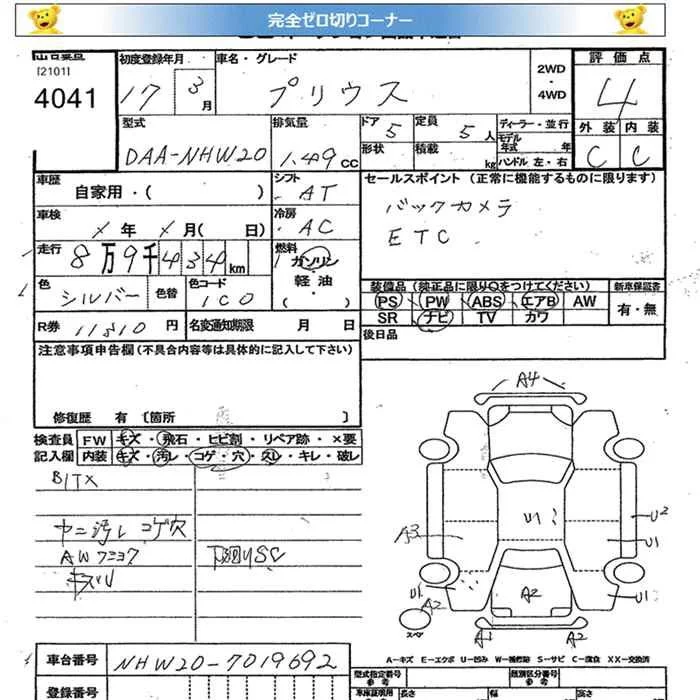 完全ゼロ切りコーナー
[2101]
4041
初度登録年月
17
3
月
車名・グレード
プリウス
2WD
・
4WD
評価点
4
外装 内装
C C
型式
DAA-NHW20
排気量
1.49 CC
ドア 5
形状
定員 5 人
積載 kg
ディーラー・並行
モデル年式 年
ハンドル 左・右
車歴
自家用・( )
シフト
AT
セールスポイント (正常に機能するものに限ります)
バックカメラ
ETC
車検
年 月( 日)
冷房
AC
走行
8万9千434km
燃料
ガソリン
軽油
・( )
色
シルバー
色替
色コード
1C0
装備品(純正品に限り○をつけてください)
PS PW ABS エアB AW
SR ナビ TV カワ
新車保証書
有・無
R券 11810 円
名変通知期限 月 日
後日品
注意事項申告欄(不具合内容等は具体的に記入して下さい)
修復歴 有 〔箇所 〕
検査員
記入欄
FW キズ・飛石・ヒビ割・リペア跡・×要
内装 キズ・汚レ・コゲ・穴・スレ・キレ・破レ
ヤニ汚レ コゲ穴
キズU
下廻りSC
A4
U1
A3
U2
U1
U1
A2
A2
U1
スペア
A1
A2
A-キズ E-エクボ U-凹み W-補修跡 S-サビ C-腐食 XX-交換済
車台番号
NHW20-7019692
登録番号
型式指定番号
参考
類別区分番号
参考
車庫証明用
参考
長さ
幅
高さ